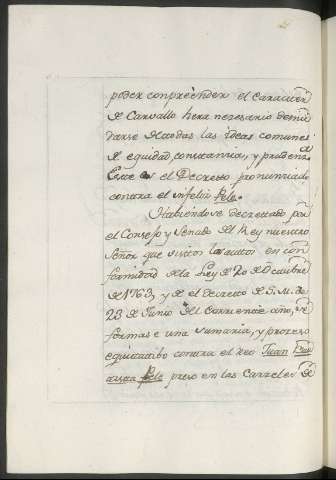 poder conprèender el Caracter
de Carvallo hera nesesario desnu
darse de todas las ideas comunes
de equidad, constancia, y prudenᵃ
Este es el Decreto pronunciado
contra el infeliz Pele.
Habiendose decrettado por
el Consejo y Senado del Rey nuestro
Señor que vistos los autos en con
formidad de la Ley de 20 de Octubre
de 1763, y de el decreto de S. M. de
23 de Junio del Corriente año, se
formase una sumaria, y proceso
equitatibo contra el reo Juan Bau
tista Pele preso en las Carceles de